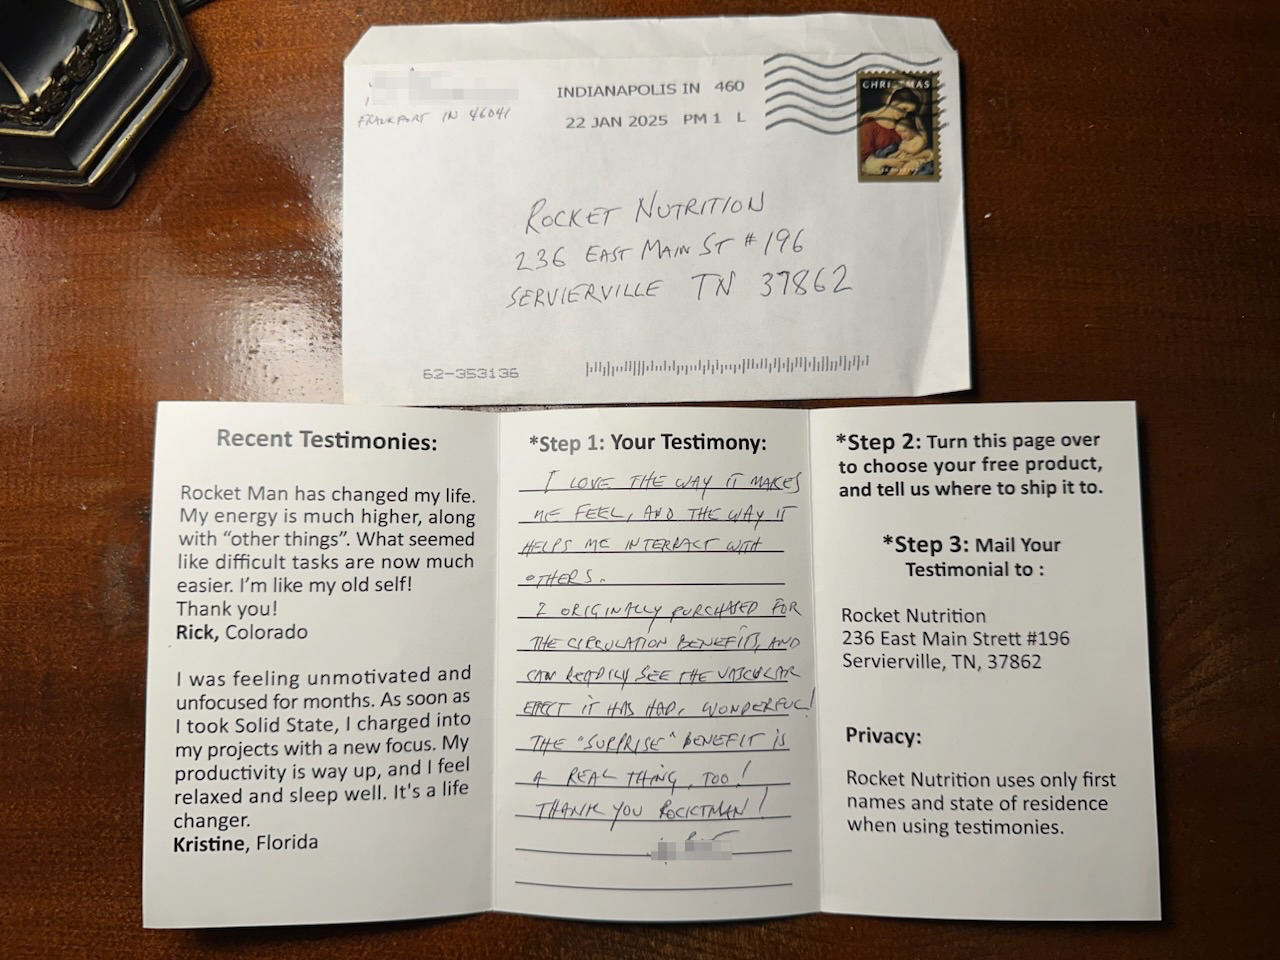 FRANKFORT IN 46041
INDIANAPOLIS IN 460
22 JAN 2025 PM 1 L
CHRISTMAS
ROCKET NUTRITION
236 EAST MAIN ST #196
SERVIERVILLE TN 37862
62-353136
Recent Testimonies:
Rocket Man has changed my life.
My energy is much higher, along
with “other things”. What seemed
like difficult tasks are now much
easier. I’m like my old self!
Thank you!
Rick, Colorado
I was feeling unmotivated and
unfocused for months. As soon as
I took Solid State, I charged into
my projects with a new focus. My
productivity is way up, and I feel
relaxed and sleep well. It's a life
changer.
Kristine, Florida
*Step 1: Your Testimony:
I LOVE THE WAY IT MAKES
ME FEEL, AND THE WAY IT
HELPS ME INTERACT WITH
OTHERS.
I ORIGINALLY PURCHASED FOR
THE CIRCULATION BENEFITS, AND
CAN READILY SEE THE VASCULAR
EFFECT IT HAS HAD. WONDERFUL!
THE "SURPRISE" BENEFIT IS
A REAL THING, TOO!
THANK YOU ROCKTMAN!
*Step 2: Turn this page over
to choose your free product,
and tell us where to ship it to.
*Step 3: Mail Your
Testimonial to :
Rocket Nutrition
236 East Main Strett #196
Servierville, TN, 37862
Privacy:
Rocket Nutrition uses only first
names and state of residence
when using testimonies.